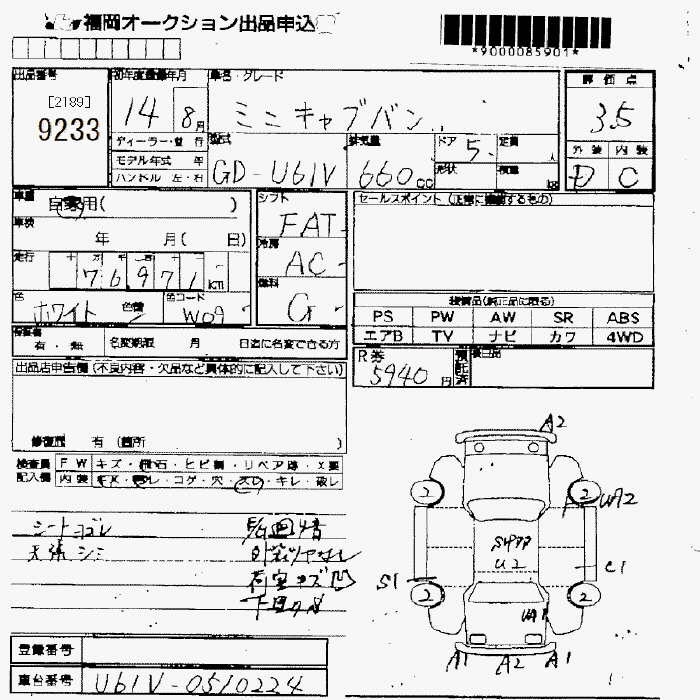 福岡オークション出品申込
*9000085901*
出品番号 初年度登録年月 車名・グレード 評価点
[2189]
9233
14 8月 ミニキャブバン 3.5
ディーラー・並行 型式 排気量 ドア 5 定員 人 外装 内装
モデル年式 年 形状 積載 kg
ハンドル 左・右 GD-U61V 660cc D C
車歴 自家用( ) シフト FAT セールスポイント(正常に機能するもの)
車検 年 月( 日) 冷房 AC
走行 十 万 千 百 十 一
76971 km
燃料 G
色 ホワイト 色替 色コード W09
装備品(純正品に限る)
PS PW AW SR ABS
エアB TV ナビ カワ 4WD
有・無 名変期限 月 日迄に名変できる方
R券 5940円 預託済 後日品
出品店申告欄(不良内容・欠品など具体的に記入して下さい)
修復歴 有(箇所 )
検査員 FW キズ・飛石・ヒビ割・リペア跡・X要
記入欄 内装 コゲ・穴・スレ・キレ・破レ
シートヨゴレ
天張シミ
外装ツヤなし
荷室キズ凹
A2
2 2 UA2
S1 U2 C1
2 2
A1 A2 A1
登録番号
車台番号 U61V-0510224